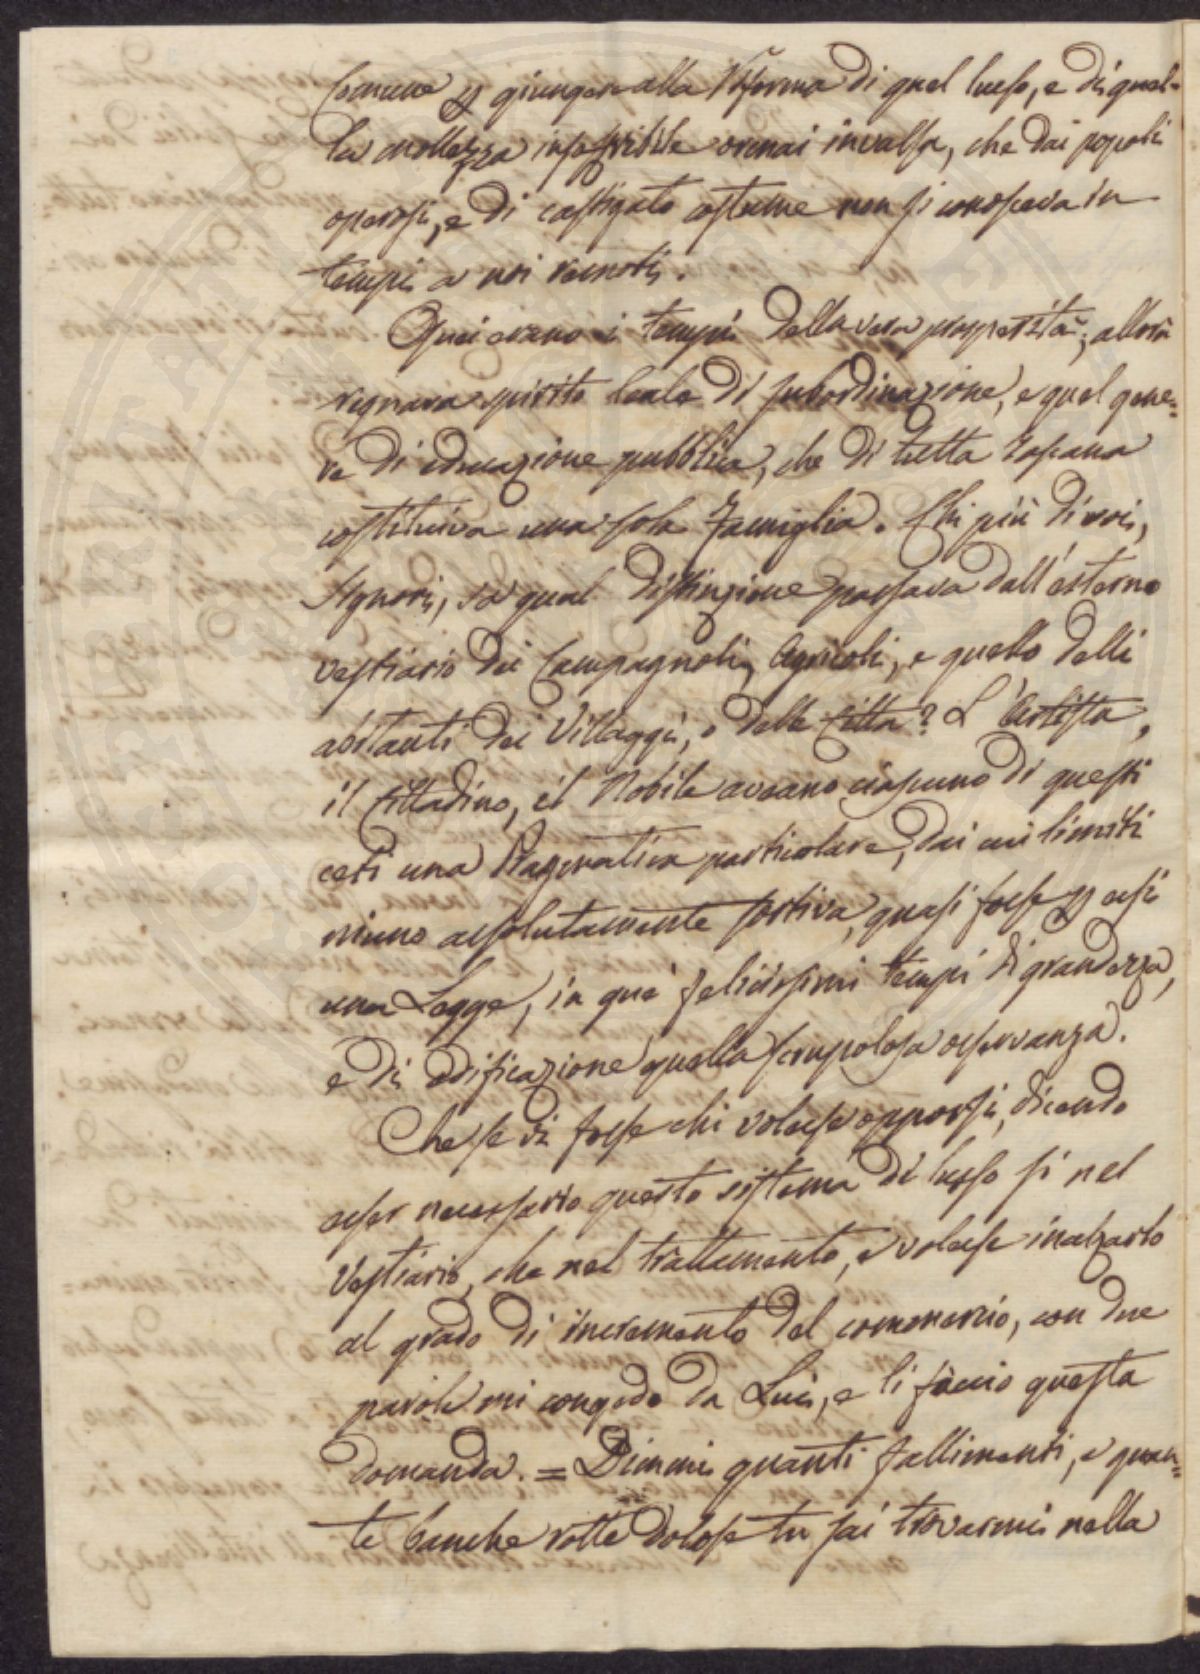 Comune p giungere alla Riforma di quel lusso, e di quel-
la mollezza insoffribile oramai invalsa, che dai popoli
operosi, e di castigato costume non si conosceva in
tempi a noi remoti.
Quei erano i tempi della vera prosperità; allora
regnava spirito leale di subordinazione, e quel gene-
re di educazione pubblica, che di tutta Toscana
costituiva una sola Famiglia. Chi più di voi,
Signori, sa qual distinzione passava dall'esterno
vestiario dei Campagnoli, Agricoli, e quello delli
abitanti dei Villaggi, o delle Città? L'Artista,
il Cittadino, il Nobile aveano ciascuno di questi
ceti una Pragmatica particolare, dai cui limiti
niuno assolutamente sortiva, quasi fosse p essi
una Legge, in que' felicissimi tempi di grandezza,
e di edificazione quella scrupolosa osservanza.
Che se vi fosse chi volesse opporsi, dicendo
esser necessario questo sistema di lusso sì nel
Vestiario, che nel trattamento, e volesse inalzarlo
al grado di incremento del commercio, con due
parole mi congedo da Lui, e li faccio questa
domanda. = Dimmi quanti fallimenti, e quan-
te banche rotte dolose tu sai trovarmi nella